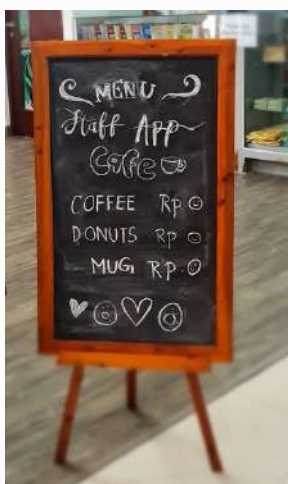 MENU
Staff App
Cafe
COFFEE Rp ☺
DONUTS Rp ☺
MUG Rp ☺